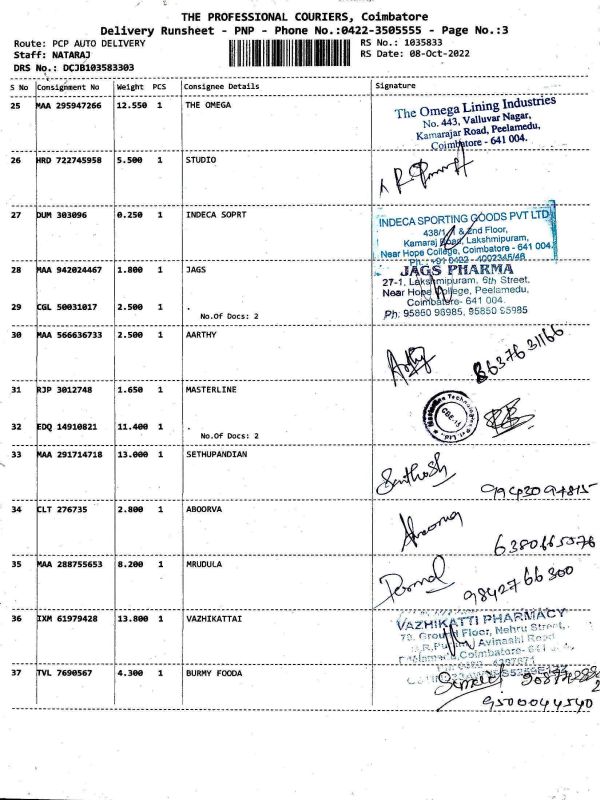 THE PROFESSIONAL COURIERS, Coimbatore
Delivery Runsheet - PNP - Phone No.:0422-3505555 - Page No.:3
Route: PCP AUTO DELIVERY
RS No.: 1035833
Staff: NATARAJ
RS Date: 08-Oct-2022
DRS No.: DCJB103583303
S No Consignment No Weight PCS Consignee Details Signature
25 MAA 295947266 12.550 1 THE OMEGA
The Omega Lining Industries
No. 443, Valluvar Nagar,
Kamarajar Road, Peelamedu,
Coimbatore - 641 004.
26 HRD 722745958 5.500 1 STUDIO
27 DUM 303096 0.250 1 INDECA SOPRT
INDECA SPORTING GOODS PVT LTD
438/1, & 2nd Floor,
Kamaraj Road, Lakshmipuram,
Near Hope College, Coimbatore - 641 004.
Ph.: +91 0422 - 4002345/46
28 MAA 942024467 1.800 1 JAGS
JAGS PHARMA
27-1, Lakshmipuram, 6th Street,
Near Hope College, Peelamedu,
Coimbatore- 641 004.
Ph: 95860 98985, 95850 95985
29 CGL 50031017 2.500 1 .
No.Of Docs: 2
30 MAA 566636733 2.500 1 AARTHY
8637631166
31 RJP 3012748 1.650 1 MASTERLINE
32 EDQ 14910821 11.400 1 .
No.Of Docs: 2
33 MAA 291714718 13.000 1 SETHUPANDIAN
Santhosh
9943094815
34 CLT 276735 2.800 1 ABOORVA
6380665076
35 MAA 288755653 8.200 1 MRUDULA
9842766300
36 IXM 61979428 13.800 1 VAZHIKATTAI
VAZHIKATTI PHARMACY
79, Ground Floor, Nehru Street,
Avinashi Road
Coimbatore- 641
37 TVL 7690567 4.300 1 BURMY FOODA
9500044540